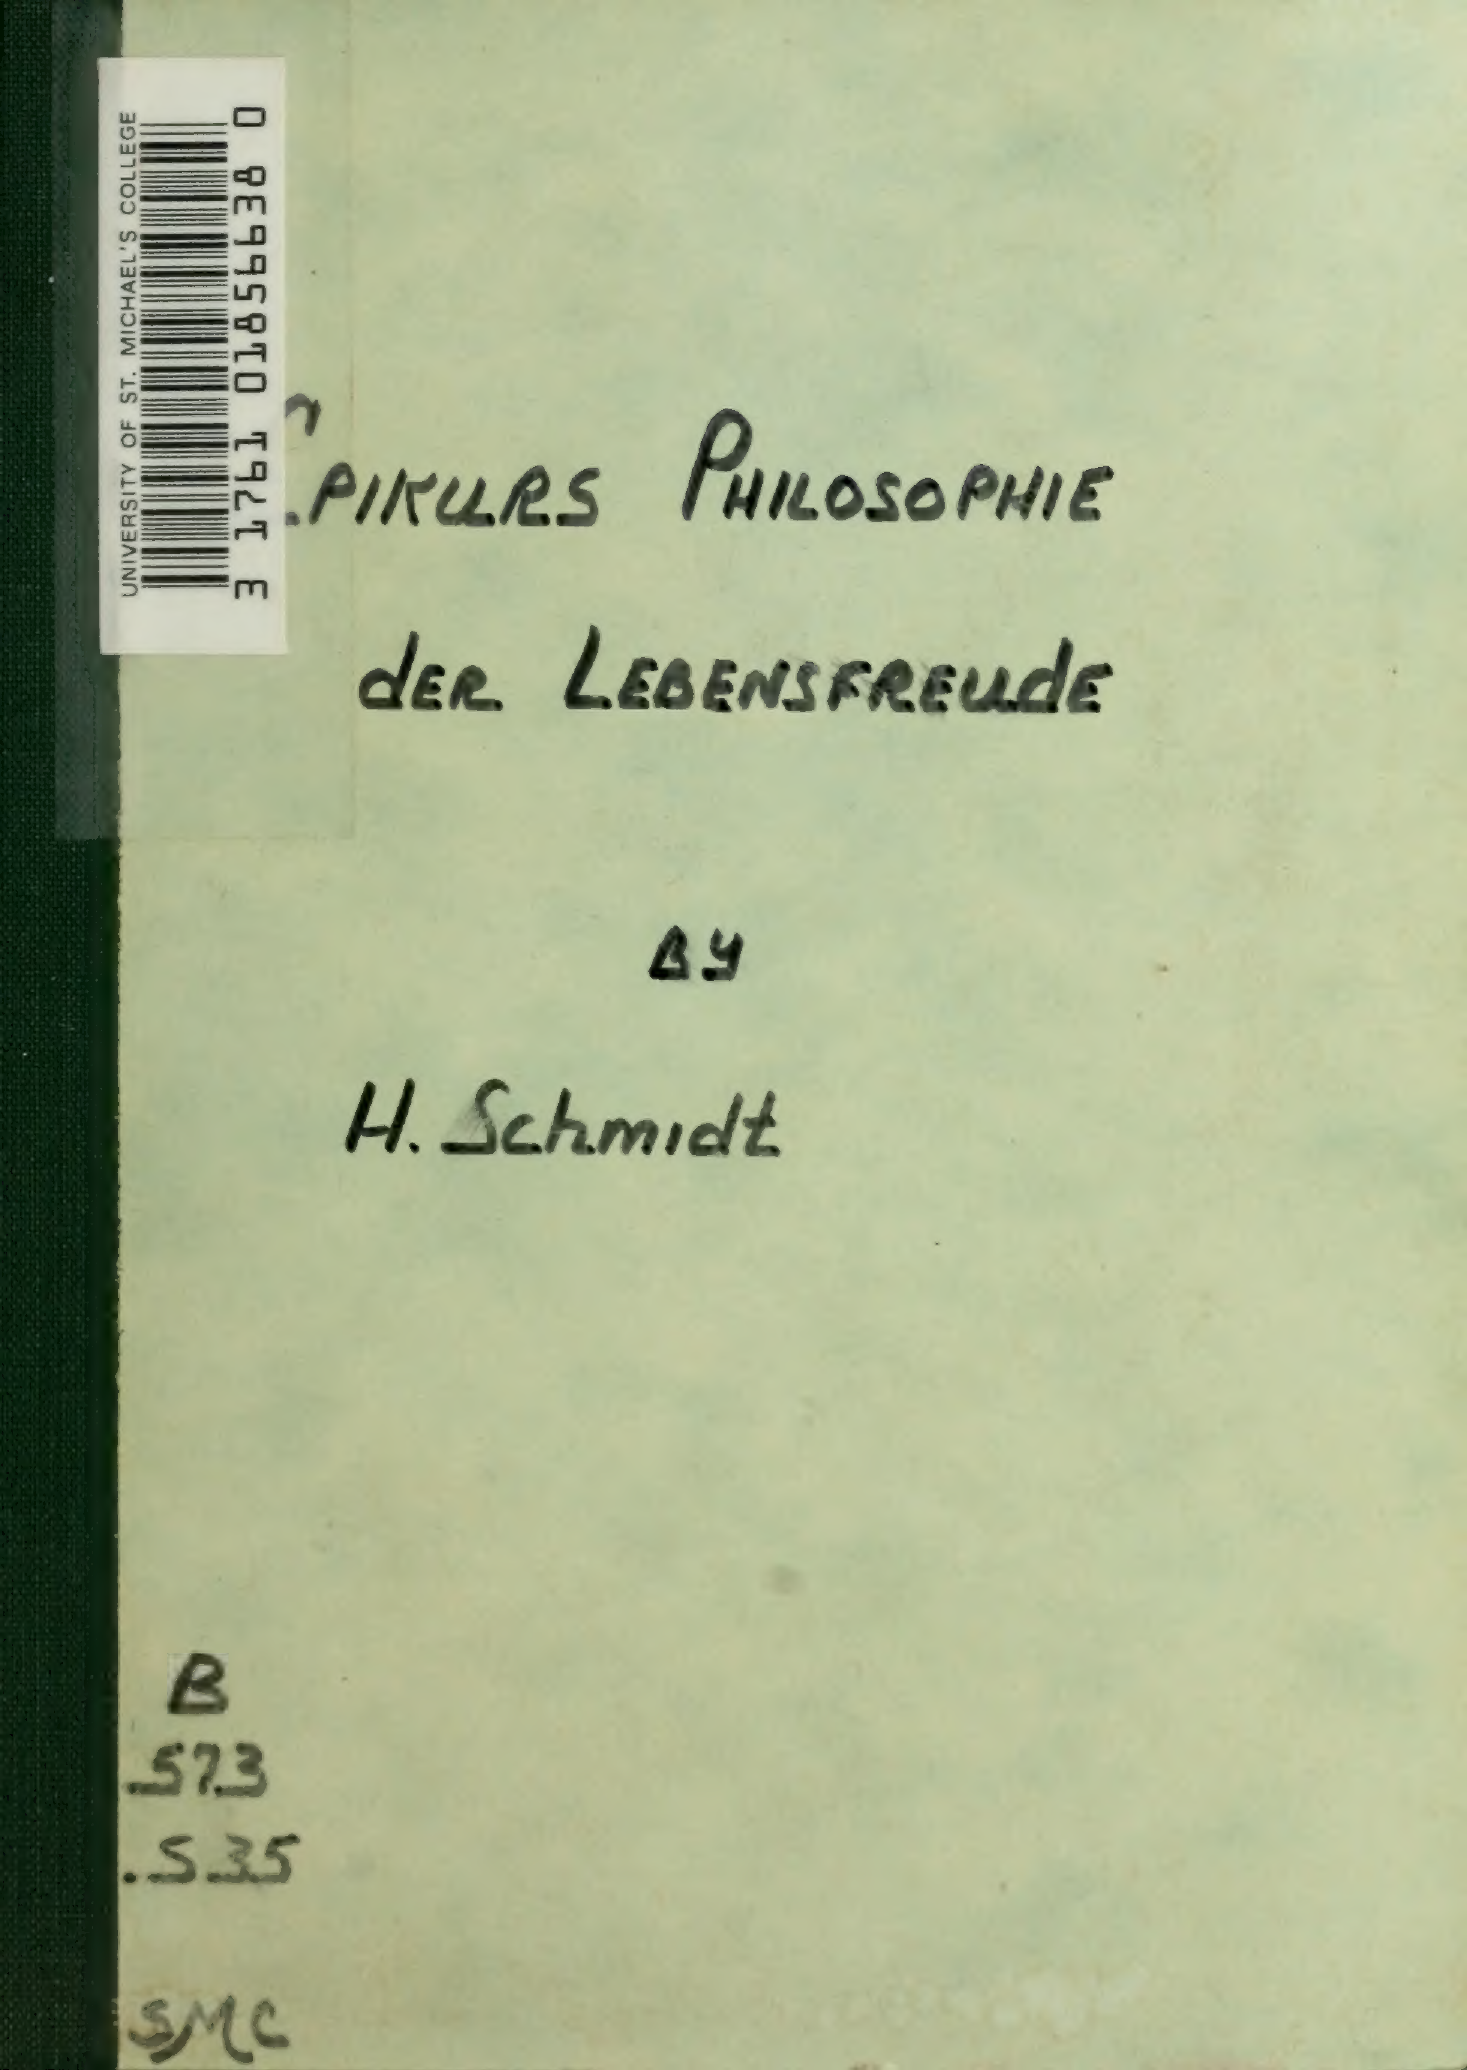 UNIVERSITY OF ST. MICHAEL'S COLLEGE
3 1761 01856638 0
EPIKURS PHILOSOPHIE
dER LEBENSFREUdE
BY
H. Schmidt
B
573
.S35
SMC